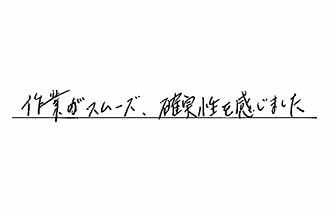 作業がスムーズ、確実性を感じました